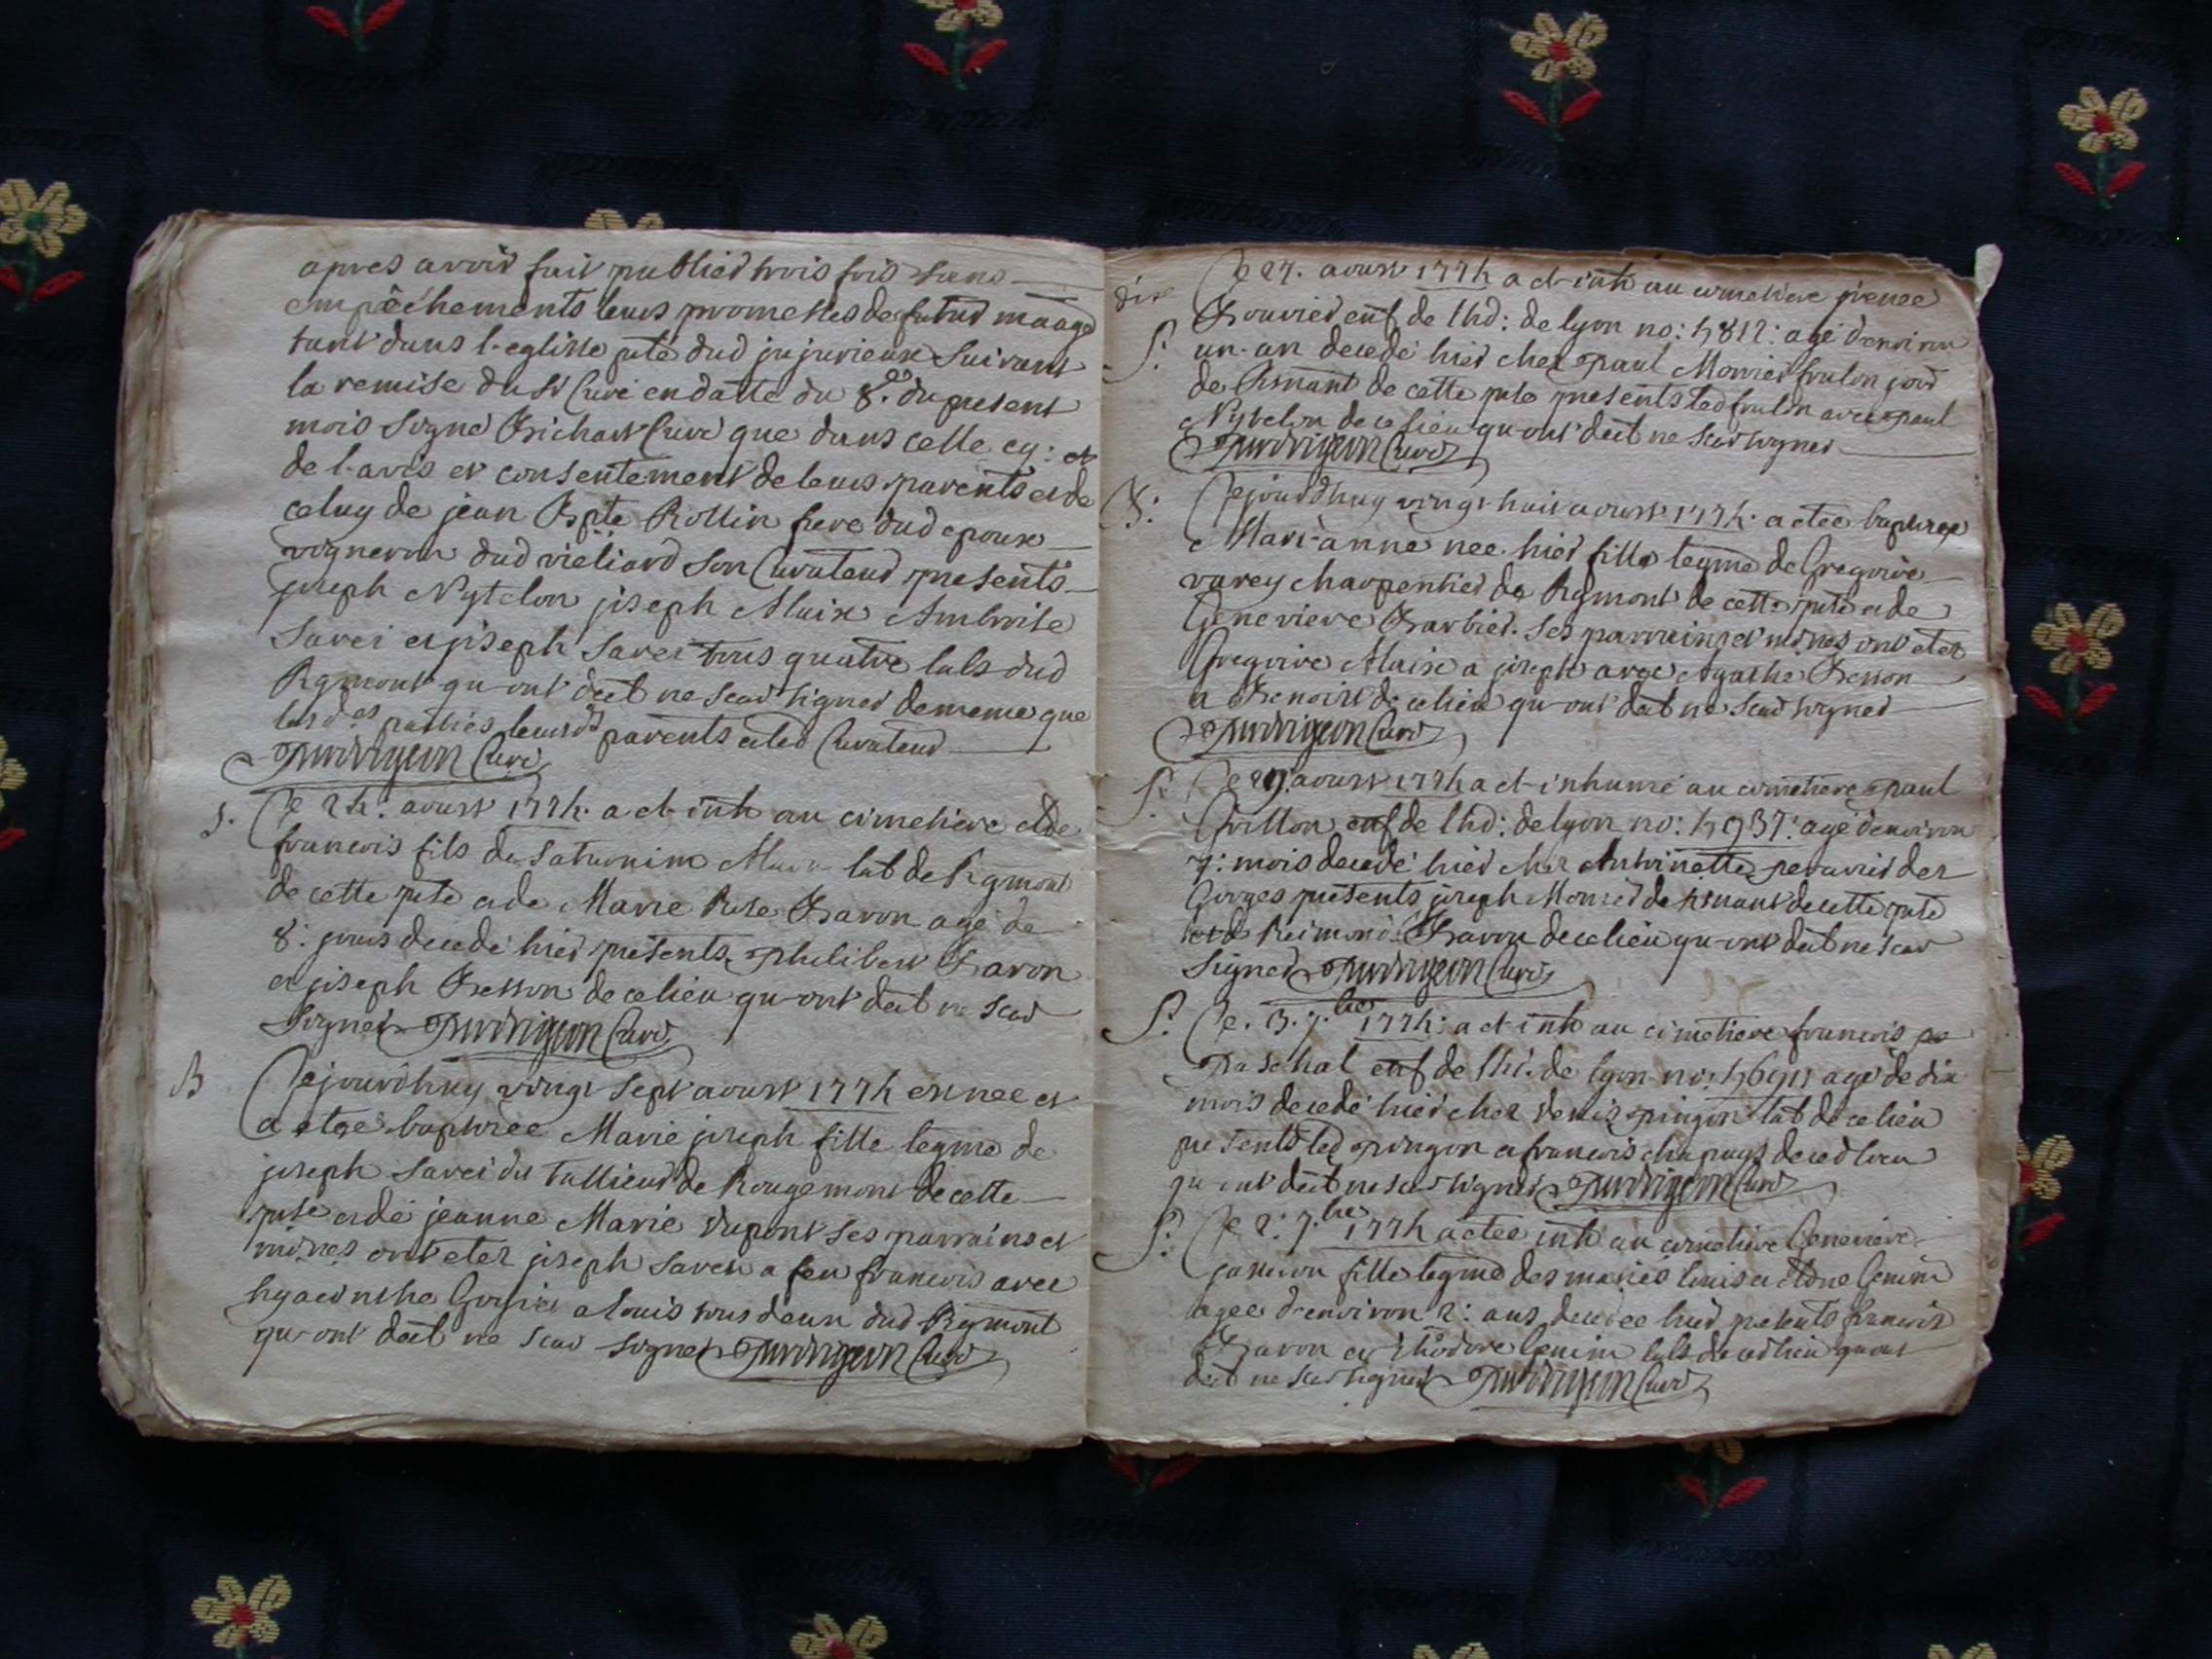 apres avoir fait publier trois fois sans
empêchements leurs promesses de futur maage
tant dans l'eglise pnte dud jujurieux suivant
la remise du Sr Curé en datte du 8. du present
mois signé Curé que dans celle cy: et
de l'avis et consentement de leurs parents et de
celuy de jean Bpte Rollin frere dud epoux
vigneron dud vieliard son Curateur presents
joseph Nytelon joseph Alaix Ambroise
Savei et joseph Savei tous quatre labs dud
Rgmont qu-ont deet ne scav signer de meme que
lesdes parties leursds parents et led Curateur
Curé
S. Ce 24: aoust 1774. a et-inh au cimetiere
francois fils de Saturnim lab de Rgmont
de cette pste et de Marie Rose Baron agé de
8: jours decedé hier presents Philibert Baron
et joseph Besson de ce lieu qu-ont deet ne scav
signer Curé
B Cejourdhuy vingt sept aoust 1774 est nee et
a etee baptizee Marie joseph fille legme de
joseph Savei dit Tallieur de Rougemont de cette
pste et de jeanne Marie Dupont ses parrains et
mones ont eter joseph Savei a feu francois avec
hyacinthe a louis tous deux dud Rgmont
qu-ont deet ne scav signer Curé
Ce 27. aoust 1774 a et-inh au cimetiere
enf de lhd: de lyon no: 4812: agé denviron
S: un-an decedé hier chez paul Monier
de de cette pste presents led avec paul
Nytelon de ce lieu qu-ont deet ne scav signer
Curé
B: Cejourdhuy vingt huit aoust 1774. a etee baptizee
Mari-anne nee hier fille legme de Gregoire
varey charpentier de Rgmont de cette pste et de
Genevieve Barbier. Ses parrains et mones ont eter
Gregoire Alaix a joseph avec Agathe Besson
a Benoist de ce lieu qu-ont deet ne scav signer
Curé
S: Ce 29 aoust 1774 a et-inhumé au cimetiere paul
Grillon enf de lhd: de lyon no: 4937: agé denviron
7: mois decedé hier chez Antoinette des
Gorges presents joseph Monier de de cette pste
et de Reimond Baron de ce lieu qu-ont deet ne scav
signer Curé
S: Ce. 3. 7.bre 1774: a et-inh au cimetiere francois
paschal enf de lhd. de lyon no: agé de dix
mois decedé hier chez denis pingon lab de ce lieu
presents led pingon et francois chapuys de ced lieu
qu-ont deet ne scav signer Curé
S: Ce 8: 7.bre 1774 a etée inh au cimetiere Genevieve
fille legme des mariés louis et Genin
agee denviron 2: ans decedee hier presents francois
Baron et Genin labs de ced lieu qu-ont
deet ne scav signer Curé